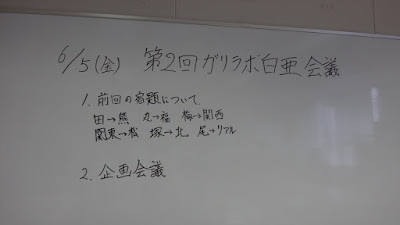 6/5(金) 第2回ガリラボ白亜会議
1. 前回の宿題について
田→熊 丸→福 梅→関西
関東→松 塚→北 尾→リアル
2. 企画会議